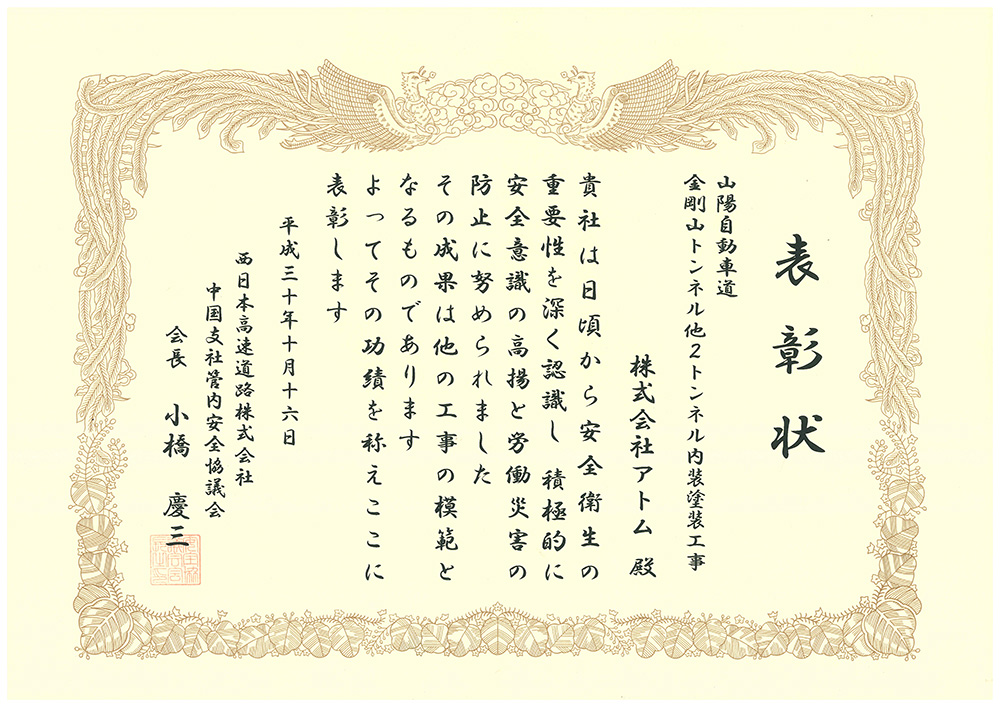 表彰状
山陽自動車道
金剛山トンネル他2トンネル内装塗装工事
株式会社アトム 殿
貴社は日頃から安全衛生の
重要性を深く認識し 積極的に
安全意識の高揚と労働災害の
防止に努められました
その成果は他の工事の模範と
なるものであります
よってその功績を称えここに
表彰します
平成三十年十月十六日
西日本高速道路株式会社
中国支社管内安全協議会
会長 小橋 慶三